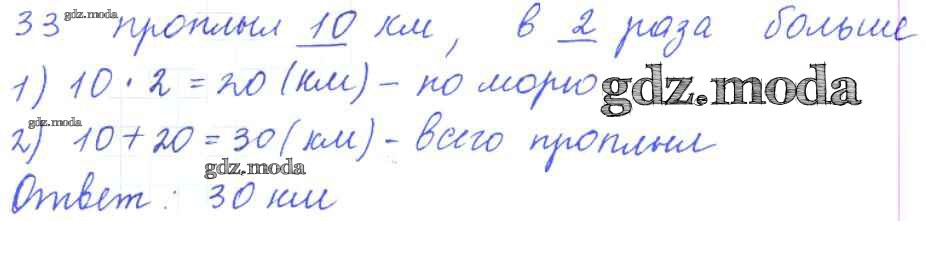 gdz.moda
33 проплыл 10 км, в 2 раза больше
1) 10 · 2 = 20 (км) – по морю gdz.moda
gdz.moda
2) 10 + 20 = 30 (км) – всего проплыл
gdz.moda
Ответ: 30 км